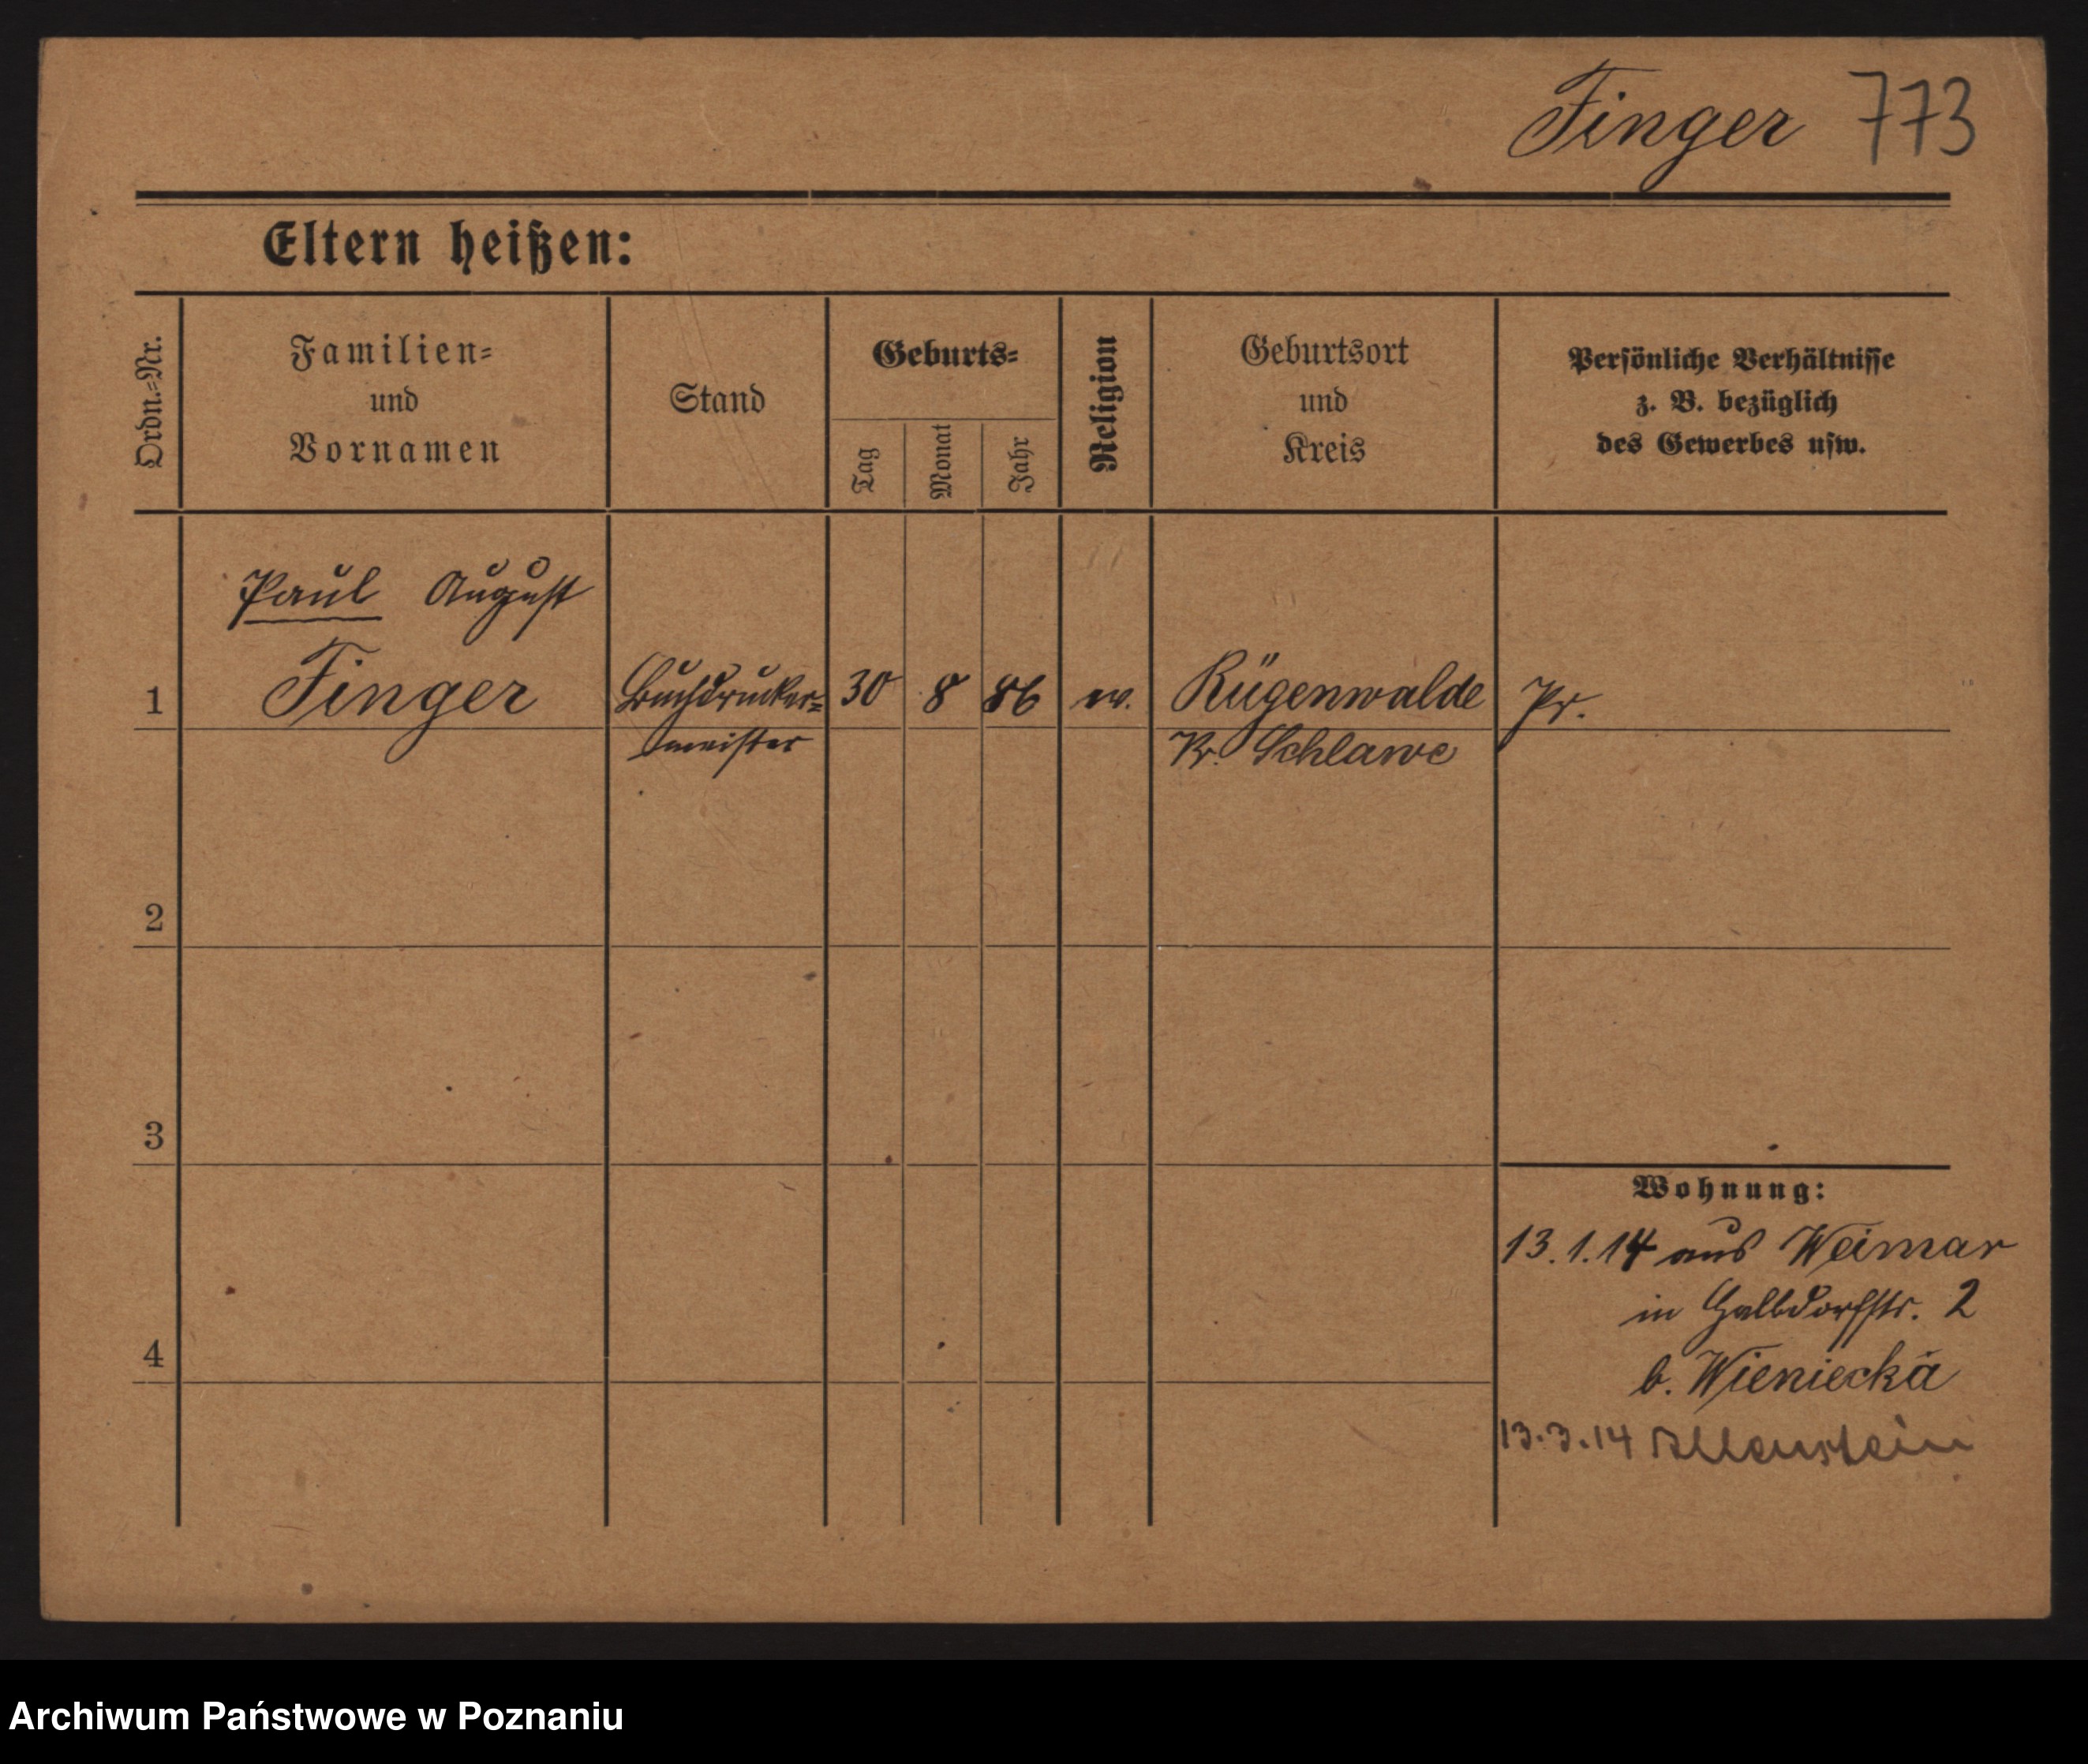 Finger 773
Eltern heißen:
Ordn.=Nr.
Familien=
und
Vornamen
Stand
Geburts=
Tag
Monat
Jahr
Religion
Geburtsort
und
Kreis
Persönliche Verhältnisse
z. B. bezüglich
des Gewerbes usw.
Paul August
1 Finger Buchdrucker= 30 8 86 ev. Rügenwalde Pr.
meister Kr. Schlawe
2
3
4
Wohnung:
13.1.14 aus Weimar
in Halbdorfstr. 2
b. Wieniecka
13.3.14 Allenstein
Archiwum Państwowe w Poznaniu